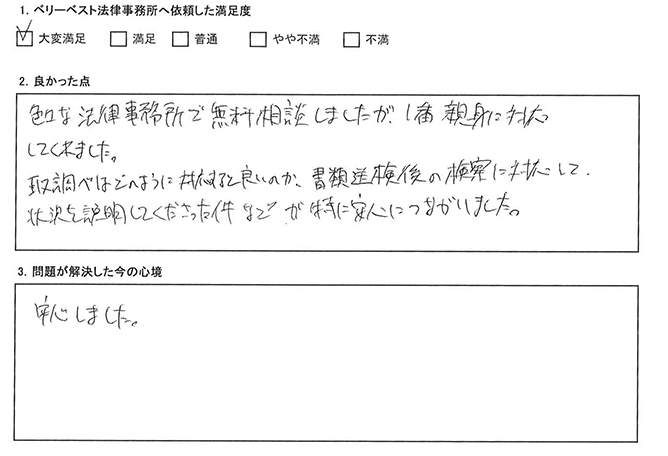 1. ベリーベスト法律事務所へ依頼した満足度
大変満足 満足 普通 やや不満 不満
2. 良かった点
色々な法律事務所で無料相談しましたが、1番親身に対応
してくれました。
取調べはどのように対応すると良いのか、書類送検後の検察に対応して、
状況を説明してくださった件などが特に安心につながりました。
3. 問題が解決した今の心境
安心しました。